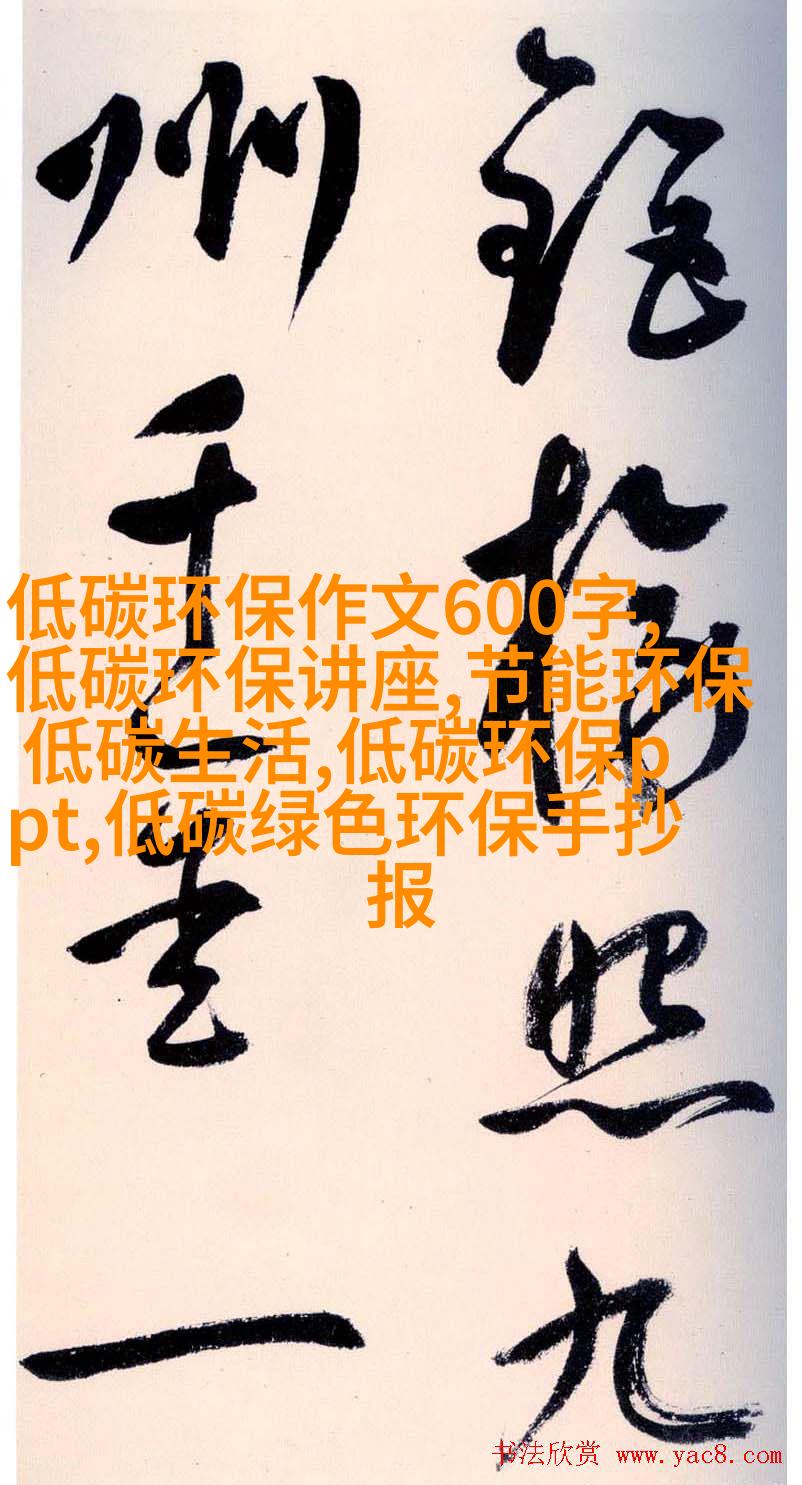 照九
州千一
低碳环保作文600字,
低碳环保讲座,节能环保
低碳生活,低碳环保p
pt,低碳绿色环保手抄
报
书法欣赏 www.yac8.com